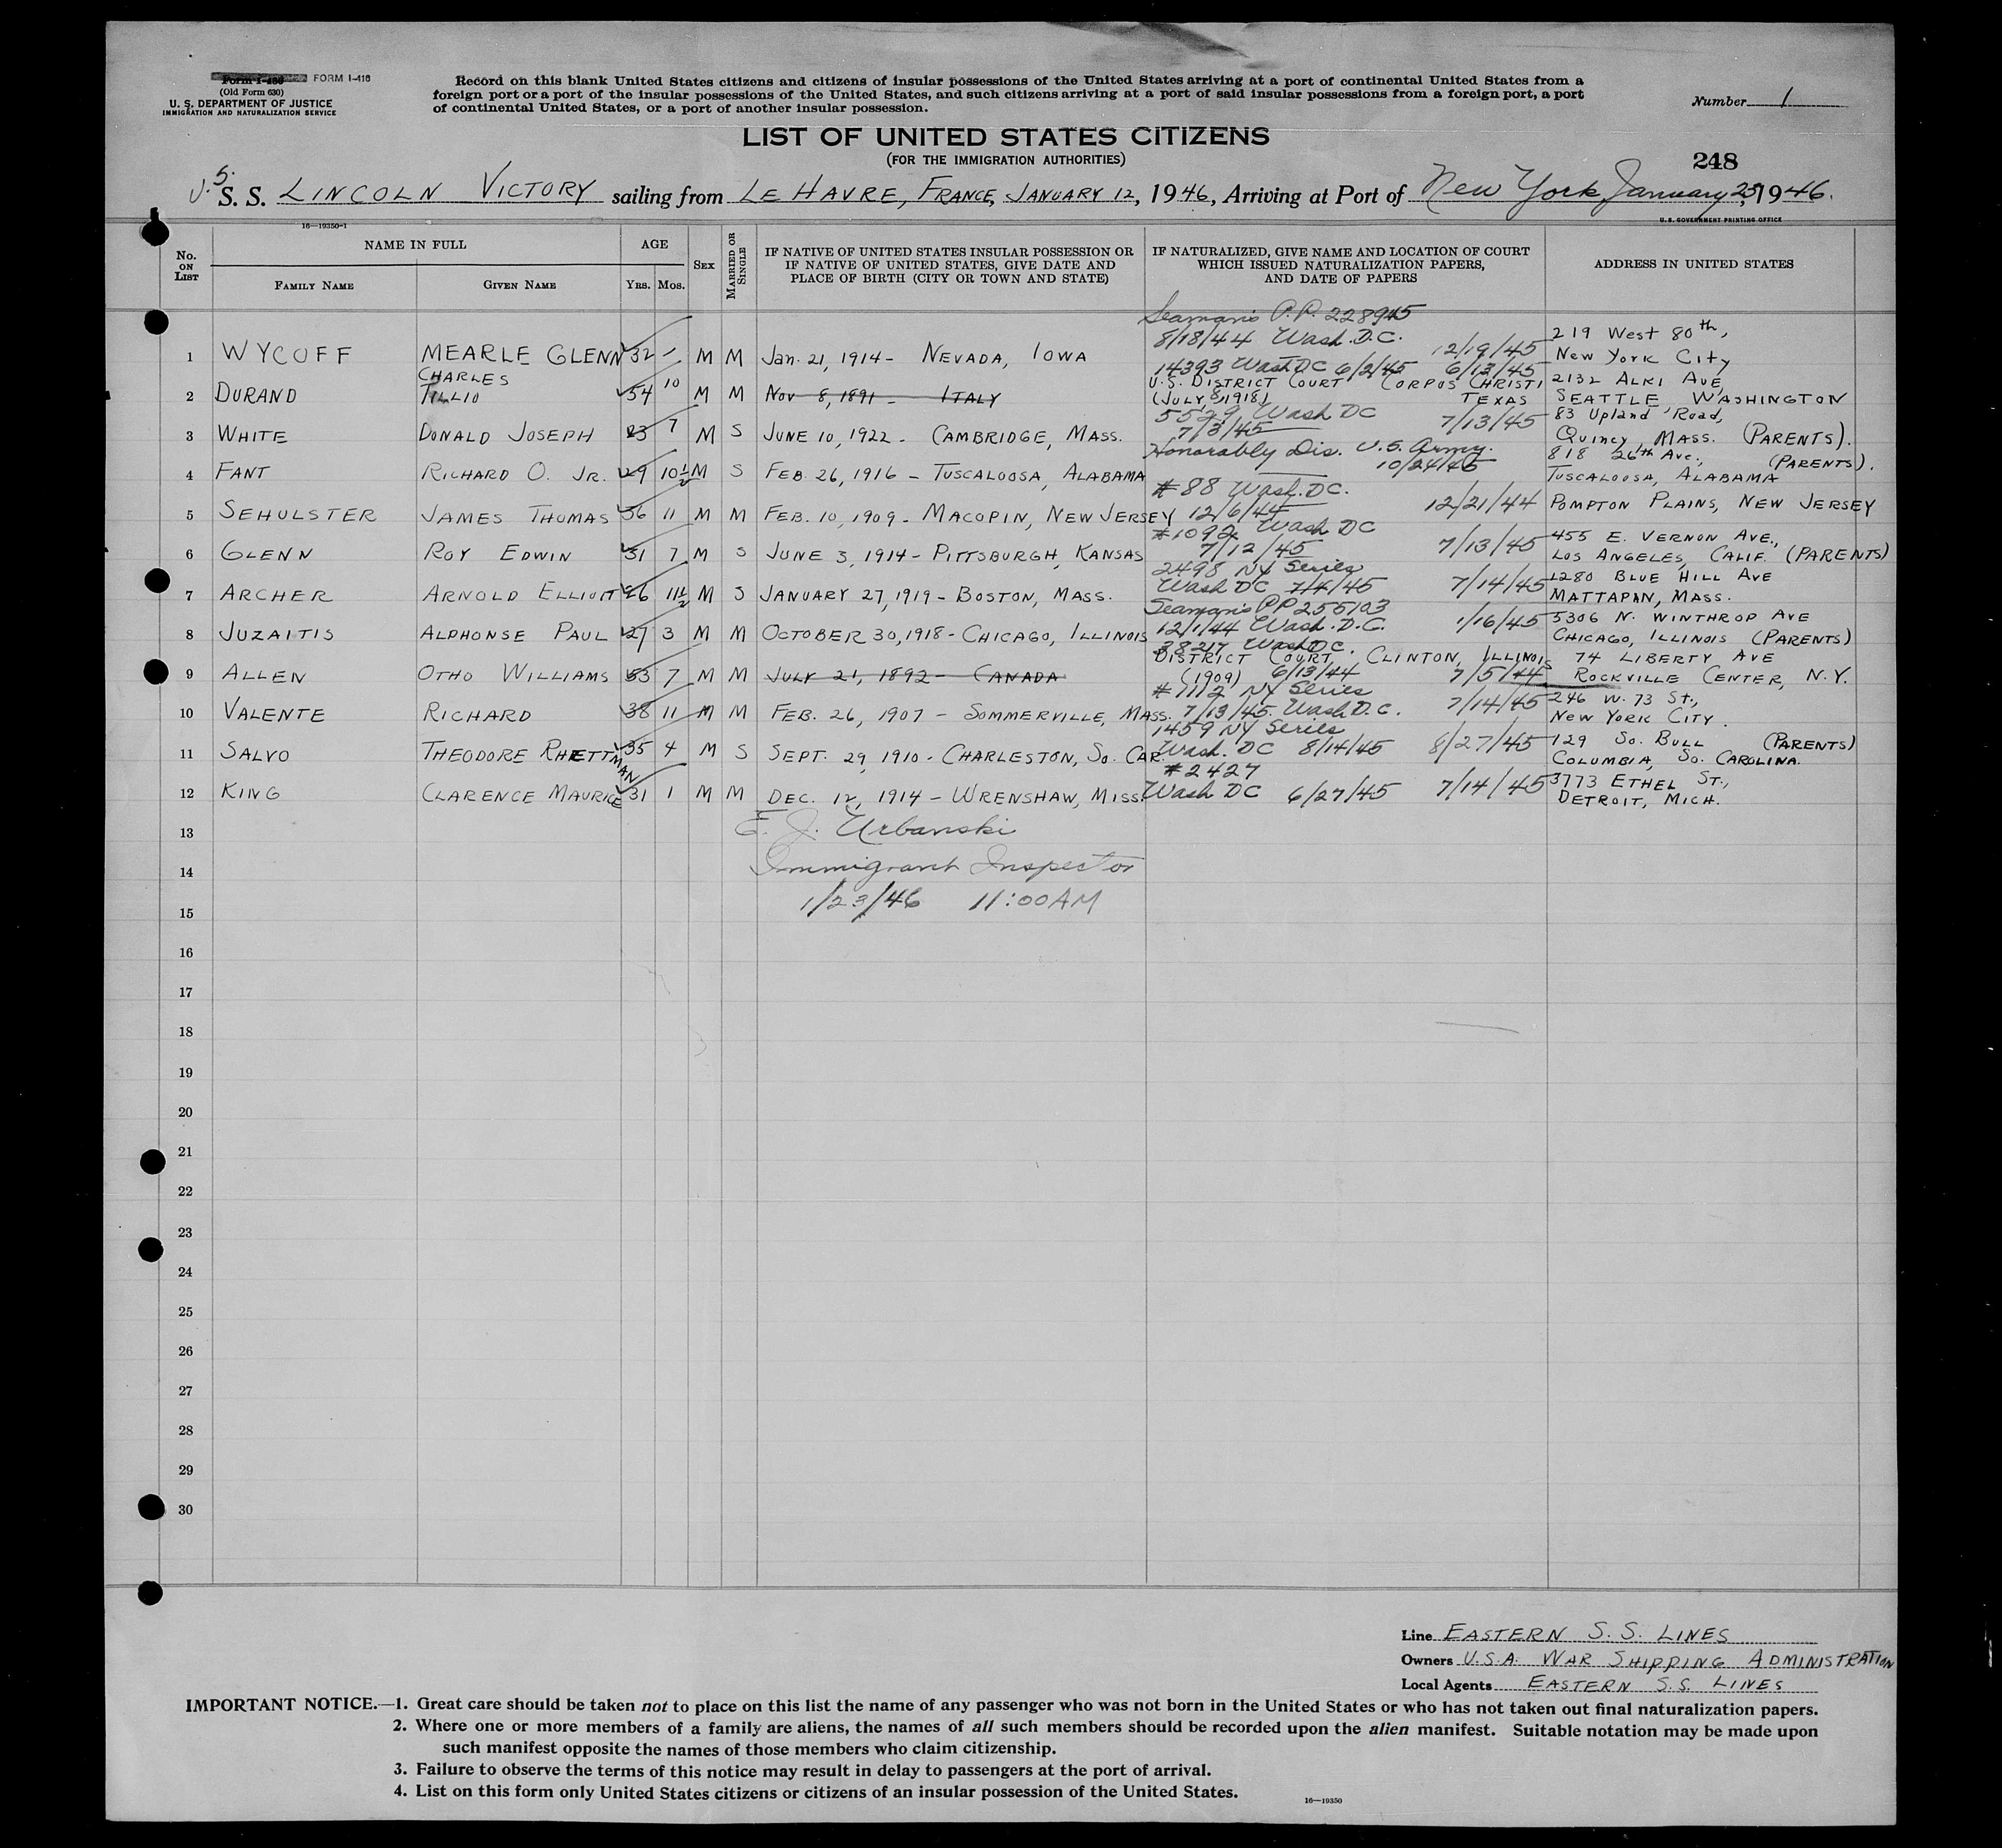 Form I-436 FORM I-416
(Old Form 630)
U. S. DEPARTMENT OF JUSTICE
IMMIGRATION AND NATURALIZATION SERVICE
Record on this blank United States citizens and citizens of insular possessions of the United States arriving at a port of continental United States from a
foreign port or a port of the insular possessions of the United States, and such citizens arriving at a port of said insular possessions from a foreign port, a port
of continental United States, or a port of another insular possession.
Number 1
LIST OF UNITED STATES CITIZENS
(FOR THE IMMIGRATION AUTHORITIES)
248
U.S. S. S. LINCOLN VICTORY sailing from LE HAVRE, FRANCE, JANUARY 12, 1946, Arriving at Port of New York, January 23, 1946.
16—19350-1
U. S. GOVERNMENT PRINTING OFFICE
No. ON LIST
NAME IN FULL
FAMILY NAME
GIVEN NAME
AGE
YRS. MOS.
SEX
MARRIED OR SINGLE
IF NATIVE OF UNITED STATES INSULAR POSSESSION OR
IF NATIVE OF UNITED STATES, GIVE DATE AND
PLACE OF BIRTH (CITY OR TOWN AND STATE)
IF NATURALIZED, GIVE NAME AND LOCATION OF COURT
WHICH ISSUED NATURALIZATION PAPERS,
AND DATE OF PAPERS
ADDRESS IN UNITED STATES
Seaman's P.P. 228945
8/18/44 Wash. D.C. 12/19/45 219 West 80th,
1 WYCOFF MEARLE GLENN 32 - M M Jan. 21, 1914 - NEVADA, IOWA New York City
14393 Wash DC 6/2/45 6/13/45
CHARLES U.S. DISTRICT COURT CORPUS CHRISTI 2132 ALKI AVE,
2 DURAND TILLIO 54 10 M M Nov 8, 1891 - ITALY (JULY 8, 1918) TEXAS SEATTLE, WASHINGTON
5529 Wash DC 83 Upland Road,
3 WHITE DONALD JOSEPH 23 7 M S JUNE 10, 1922 - CAMBRIDGE, MASS. 7/3/45 7/13/45 Quincy, MASS. (PARENTS).
Honorably Dis. U.S. Army. 818 26th Ave., (PARENTS).
4 FANT RICHARD O. JR. 29 10½ M S FEB. 26, 1916 - TUSCALOOSA, ALABAMA 10/24/45 TUSCALOOSA, ALABAMA
#88 Wash. DC.
5 SEHULSTER JAMES THOMAS 36 11 M M FEB. 10, 1909 - MACOPIN, NEW JERSEY 12/6/44 12/21/44 POMPTON PLAINS, NEW JERSEY
#1092 Wash DC 455 E. VERNON AVE.,
6 GLENN ROY EDWIN 31 7 M S JUNE 3, 1914 - PITTSBURGH, KANSAS 7/12/45 7/13/45 LOS ANGELES, CALIF. (PARENTS)
2498 NY Series 1280 BLUE HILL AVE
7 ARCHER ARNOLD ELLIOTT 26 11½ M S JANUARY 27, 1919 - BOSTON, MASS. Wash DC 7/4/45 7/14/45 MATTAPAN, MASS.
Seaman's PP 255103 5306 N. WINTHROP AVE
8 JUZAITIS ALPHONSE PAUL 27 3 M M OCTOBER 30, 1918 - CHICAGO, ILLINOIS 12/1/44 Wash. D.C. 1/16/45 CHICAGO, ILLINOIS (PARENTS)
38217 Wash DC.
DISTRICT COURT, CLINTON, ILLINOIS 74 LIBERTY AVE
9 ALLEN OTHO WILLIAMS 53 7 M M JULY 21, 1892 - CANADA (1909) 6/13/44 7/5/44 ROCKVILLE CENTER, N.Y.
#1112 NY Series 246 W. 73 St.,
10 VALENTE RICHARD 38 11 M M FEB. 26, 1907 - SOMMERVILLE, MASS. 7/13/45 Wash D.C. 7/14/45 NEW YORK CITY.
1459 NY Series 129 So. BULL (PARENTS)
11 SALVO THEODORE RHETTMAN 35 4 M S SEPT. 29, 1910 - CHARLESTON, So. CAR. Wash. DC 8/14/45 8/27/45 COLUMBIA, So. CAROLINA.
#2427 3773 ETHEL ST.,
12 KING CLARENCE MAURICE 31 1 M M DEC. 12, 1914 - WRENSHAW, MISS. Wash DC 6/27/45 7/14/45 DETROIT, MICH.
13 E. J. Urbanski
14 Immigrant Inspector
15 1/23/46 11:00 AM
16
17
18
19
20
21
22
23
24
25
26
27
28
29
30
Line EASTERN S. S. LINES
Owners U.S.A. WAR SHIPPING ADMINISTRATION
Local Agents EASTERN S.S. LINES
IMPORTANT NOTICE.—1. Great care should be taken not to place on this list the name of any passenger who was not born in the United States or who has not taken out final naturalization papers.
2. Where one or more members of a family are aliens, the names of all such members should be recorded upon the alien manifest. Suitable notation may be made upon
such manifest opposite the names of those members who claim citizenship.
3. Failure to observe the terms of this notice may result in delay to passengers at the port of arrival.
4. List on this form only United States citizens or citizens of an insular possession of the United States.
16—19350